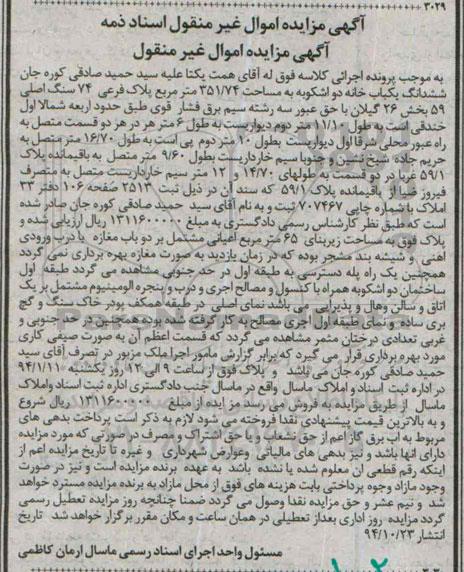 ۳۰۲۹
آگهی مزایده اموال غیر منقول اسناد ذمه
آگهی مزایده اموال غیر منقول
به موجب پرونده اجرائی کلاسه فوق له آقای همت یکتا علیه سید حمید صادقی کوره جان
ششدانگ یکباب خانه دو اشکوبه به مساحت ۳۵۱/۷۴ متر مربع پلاک فرعی ۷۴ سنگ اصلی
۵۹ بخش ۲۶ گیلان با حق عبور سه رشته سیم برق فشار قوی طبق حدود اربعه شمالا اول
خندقی است به طول ۱۱/۱۰ متر دوم دیواریست به طول ۶ متر هر در هر دو قسمت متصل به
راه عبور محلی شرقا اول دیواریست بطول ۱۰ متر دوم پی است به طول ۱۶/۷۰ متر متصل به
حریم جاده شیخ نشین و جنوبا سیم خارداریست بطول ۹/۶۰ متر متصل به باقیمانده پلاک
۵۹/۱ غربا در دو قسمت به طولهای ۱۴/۷۰ و ۱۲ متر سیم خارداریست متصل به متصرف
فیروز شفا از باقیمانده پلاک ۵۹/۱ که سند آن در ذیل ثبت ۲۵۱۳ صفحه ۱۰۶ دفتر ۳۳
املاک با شماره چاپی ۷۰۷۴۶۷ ثبت و به نام آقای سید حمید صادقی کوره جان صادر شده
است که طبق نظر کارشناس رسمی دادگستری به مبلغ ۱۳۱۱۶۰۰۰۰۰ ریال ارزیابی شده و
پلاک فوق به مساحت زیربنای ۶۵ متر مربع اعیانی مشتمل بر دو باب مغازه با درب ورودی
اهنی و شیشه بند مشجر بوده که در زمان بازدید به صورت مغازه بهره برداری نمی گردد
همچنین یک راه پله دسترسی به طبقه اول در حد جنوبی مشاهده می گردد طبقه اول
ساختمان دو اشکوبه همراه با کنسول و مصالح اجری و درب و پنجره الومینیوم مشتمل بر یک
اتاق و سالن وهال و پذیرایی می باشد نمای اصلی در طبقه همکف پودر خاک سنگ و گچ
بری ساده و نمای طبقه اول آجری مصالح به کار گرفته شده بوده همچنین در حد جنوبی و
غربی تعدادی درختان مثمر مشاهده می گردد که قسمت اعظم آن به صورت صیفی کاری
مورد بهره برداری قرار می گیرد که برابر گزارش مامور اجرا ملک مزبور در تصرف آقای سید
حمید صادقی کوره جان می باشد و پلاک فوق از ساعت ۹ الی ۱۲ روز یکشنبه ۹۴/۱۱/۱۱
در اداره ثبت اسناد و املاک ماسال واقع در ماسال جنب دادگستری اداره ثبت اسناد واملاک
ماسال از طریق مزایده به فروش می رسد مزایده از مبلغ ۱۱۳۱۱۶۰۰۰۰۰ ریال شروع
و به بالاترین قیمت پیشنهادی نقدا فروخته می شود لازم به ذکر است پرداخت بدهی های
مربوط به اب برق گاز اعم از حق نشعاب و یا حق اشتراک و مصرف در صورتی که مورد مزایده
دارای انها باشد و نیز بدهی های مالیاتی وعوارض شهرداری و غیره تا تاریخ مزایده اعم از
اینکه رقم قطعی ان معلوم شده یا نشده باشد به عهده برنده مزایده است و نیز در صورت
وجود مازاد وجوه پرداختی بابت هزینه های فوق از محل مازاد به برنده مزایده مسترد خواهد
شد و نیم عشر و حق مزایده نقدا وصول می گردد ضمنا چنانچه روز مزایده تعطیل رسمی
گردد مزایده روز اداری بعداز تعطیلی در همان ساعت و مکان مقرر برگزار خواهد شد تاریخ
انتشار ۹۴/۱۰/۲۳
مسئول واحد اجرای اسناد رسمی ماسال ارمان کاظمی